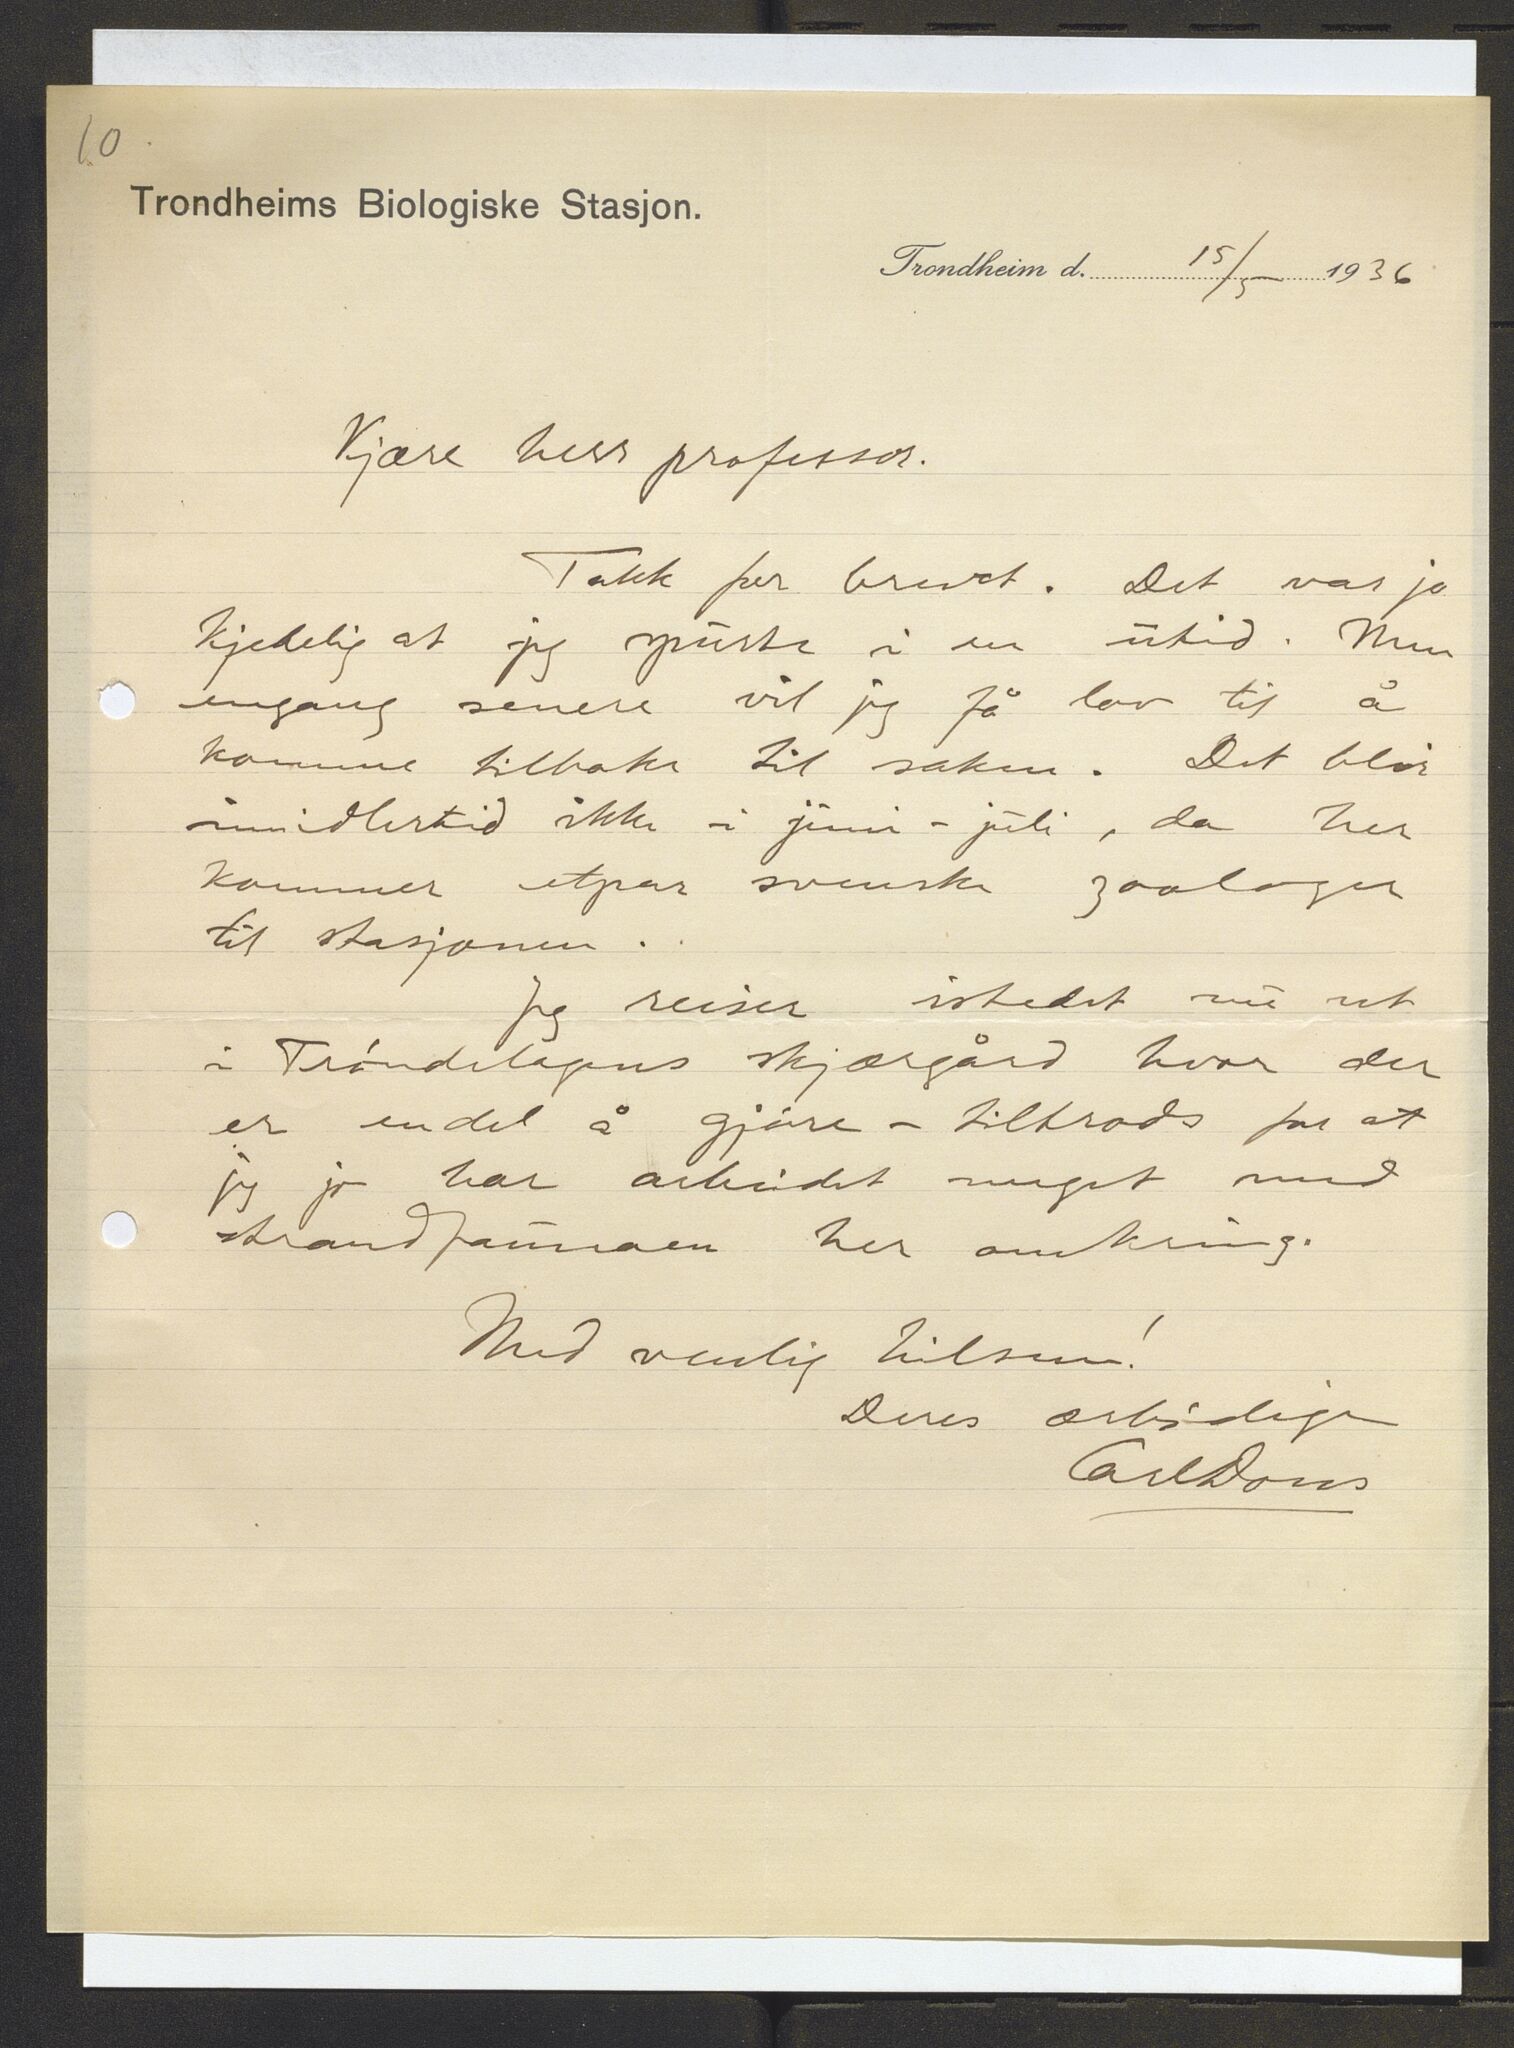 10
Trondheims Biologiske Stasjon.
Trondheim d. 15/5 1936
Kjære herr professor.
Takk for brevet. Det var jo
kjedelig at jeg spurte i en utid. Men
engang senere vil jeg få lov til å
komme tilbake til saken. Det blir
imidlertid ikke i juni - juli, da her
kommer etpar svenske zoologer
til stasjonen.
Jeg reiser istedet nu ut
i Trøndelagens skjærgård hvor der
er endel å gjøre - tiltrods for at
jeg jo har arbeidet meget med
strandfaunaen her omkring.
Med venlig hilsen!
Deres ærbødige
Carl Dons